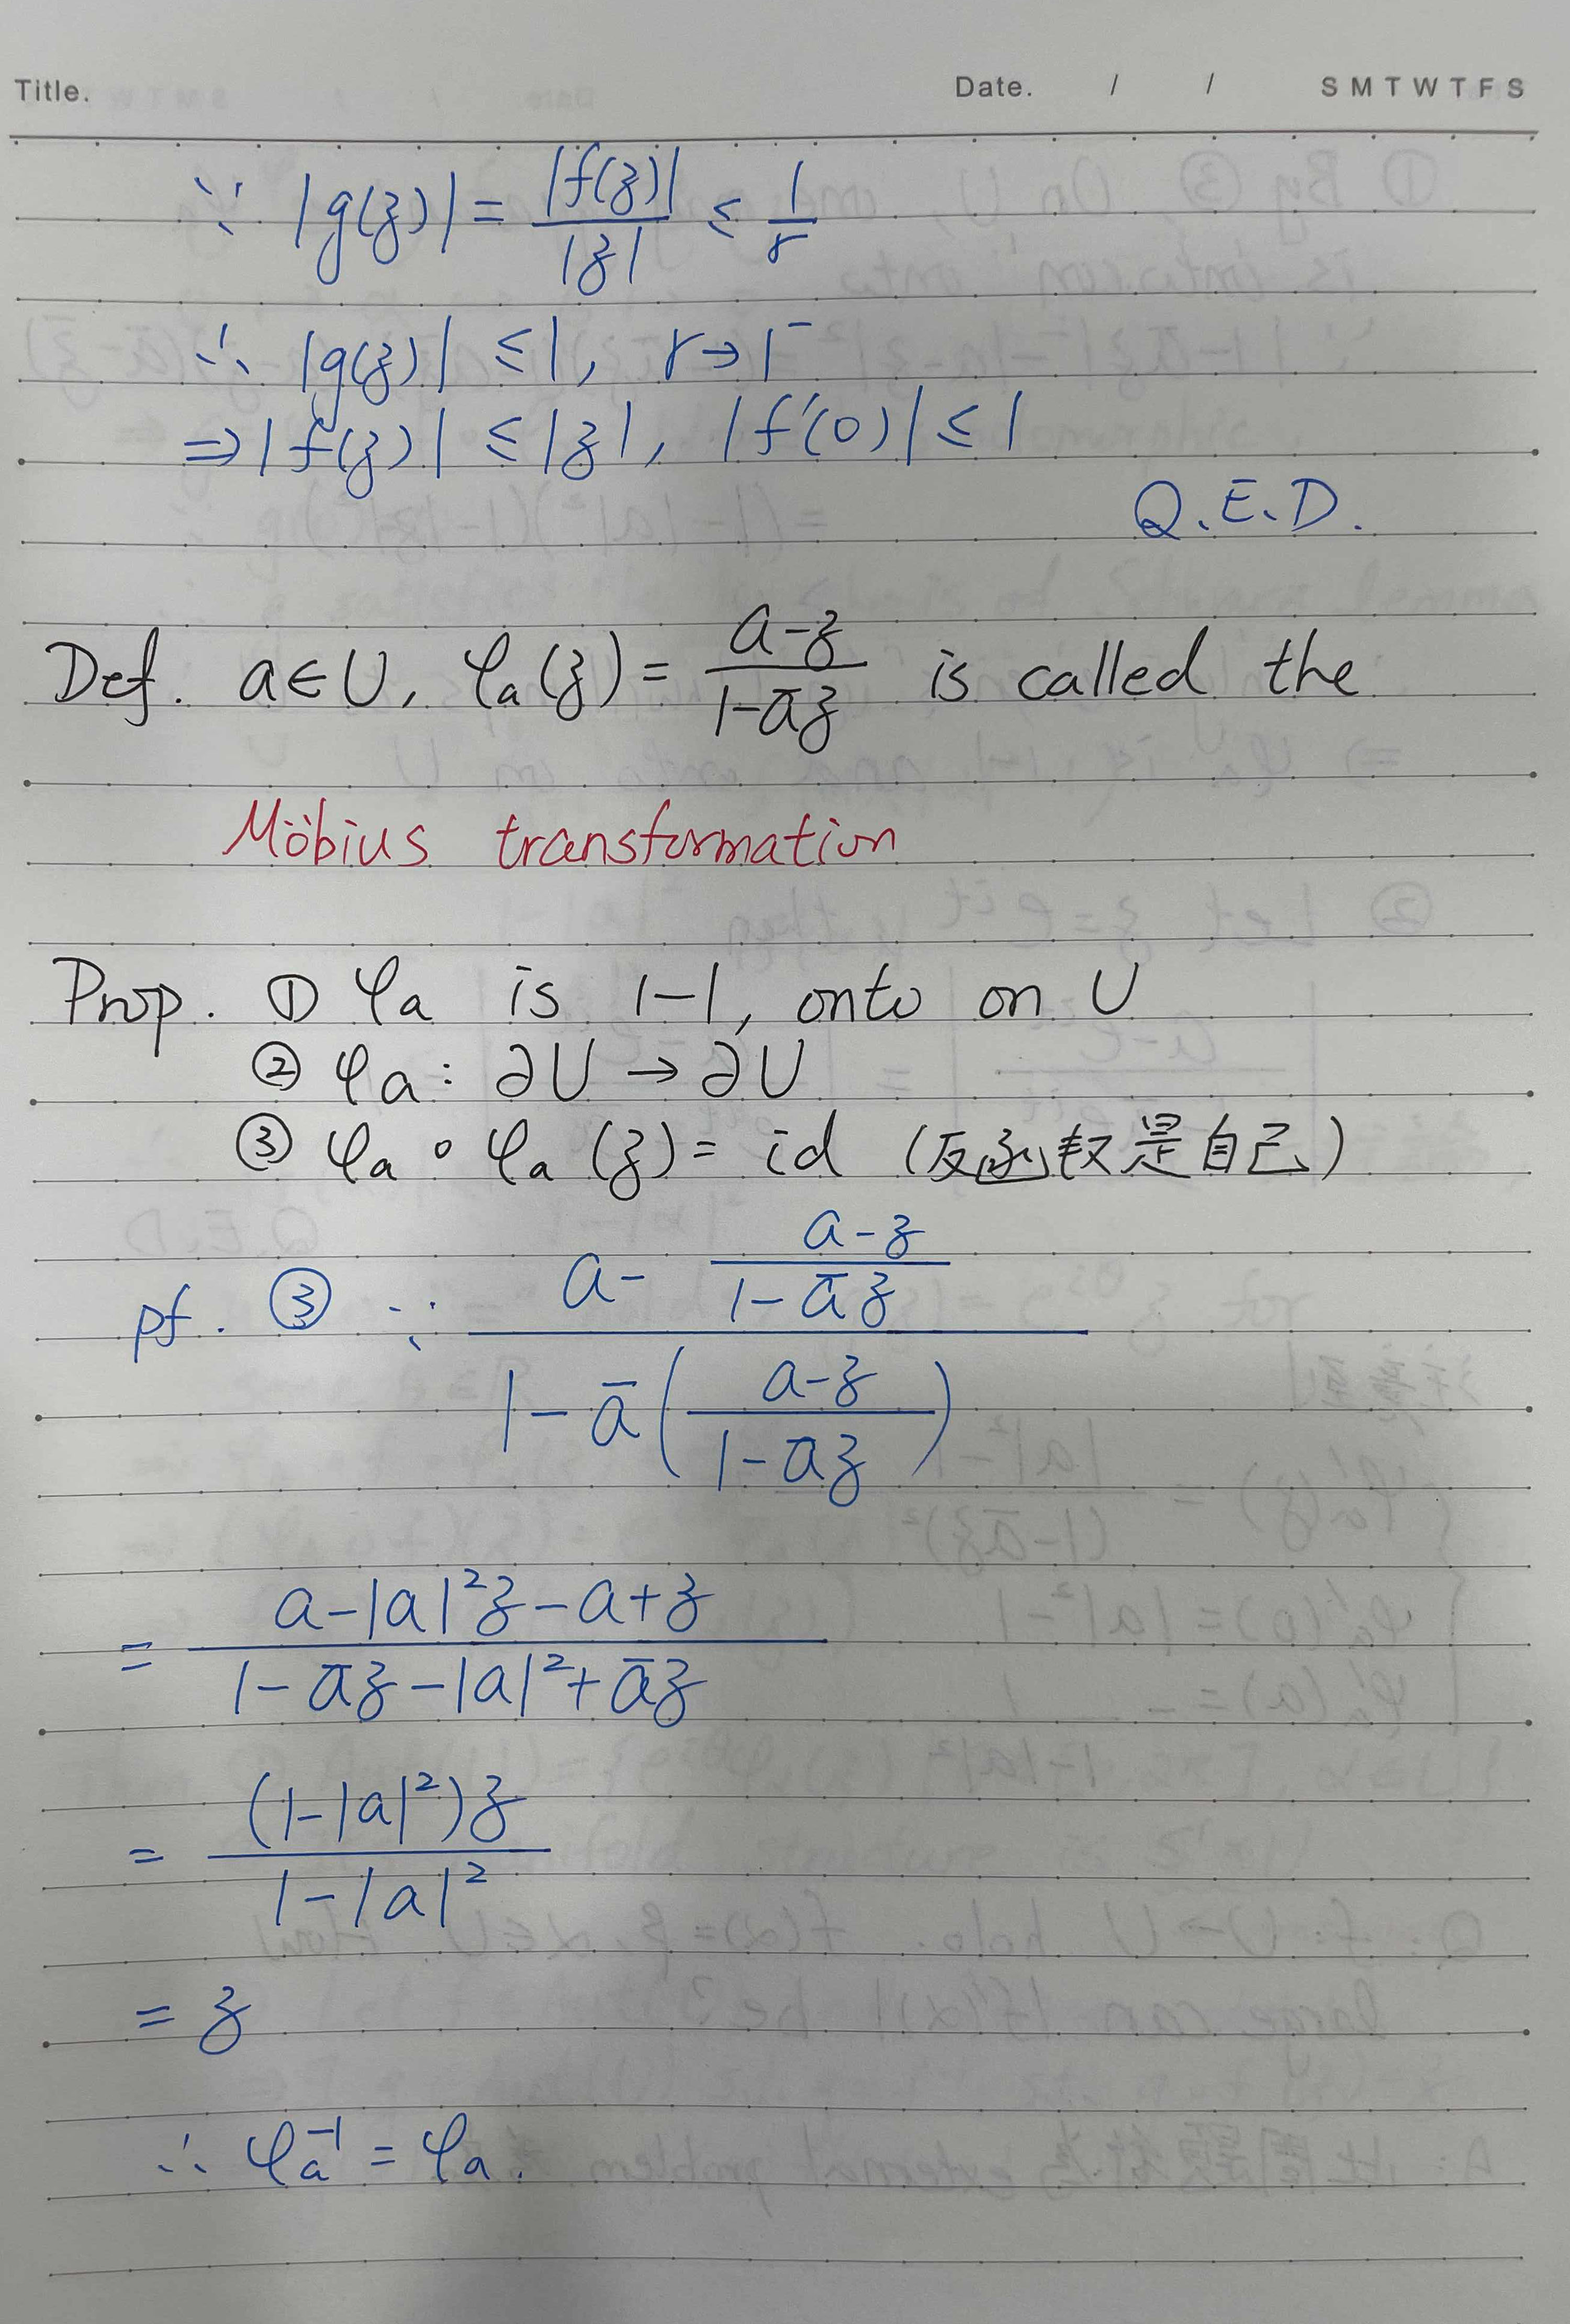 Title. Date. / / S M T W T F S
∵ |g(z)| = |f(z)| / |z| ≤ 1/r
∴ |g(z)| ≤ 1, r → 1⁻
⇒ |f(z)| ≤ |z|, |f'(0)| ≤ 1
Q.E.D.
Def. a ∈ U, φₐ(z) = (a-z) / (1-āz) is called the
Möbius transformation
Prop. ① φₐ is 1-1, onto on U
② φₐ : ∂U → ∂U
③ φₐ ∘ φₐ (z) = id (反函数是自己)
pf. ③ ∵ (a - (a-z)/(1-āz)) / (1 - ā((a-z)/(1-āz)))
= (a - |a|²z - a + z) / (1 - āz - |a|² + āz)
= ((1-|a|²)z) / (1-|a|²)
= z
∴ φₐ⁻¹ = φₐ.